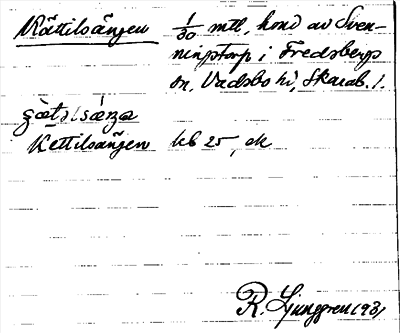 Kättilsängen 1/30 mtl, hond av Sven-
ningstorp i Fredsbergs
sn, Vadsbo hd, Skarab. l.
Kettilsängen kb 25, ek
R. Ljunggren 1931